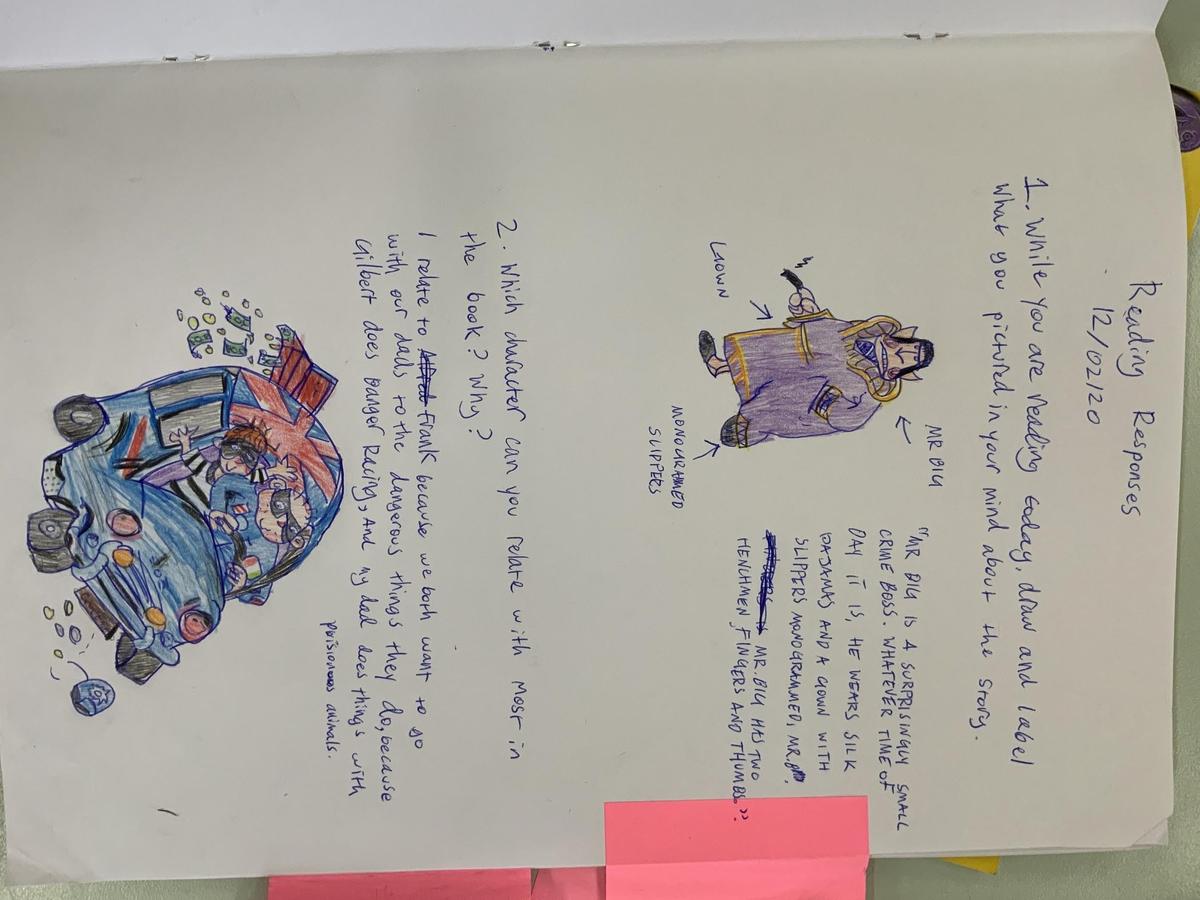 Reading Responses
12/02/20
1. While you are reading today, draw and label
What you pictured in your mind about the story.
MR BIG
GOWN
MONOGRAMED
SLIPPERS
"MR BIG IS A SURPRISINGLY SMALL
CRIME BOSS. WHATEVER TIME OF
DAY IT IS, HE WEARS SILK
PAJAMAS AND A GOWN WITH
SLIPPERS MONOGRAMMED, MR.
MR.BIG HAS TWO
HENCHMEN FINGERS AND THUMBS.".
2. Which character can you relate with most in
the book? Why?
I relate to Frank because we both want to go
with our dads to the dangerous things they do, because
Gilbert does Banger Racing, And my dad does things with
poisionous animals.